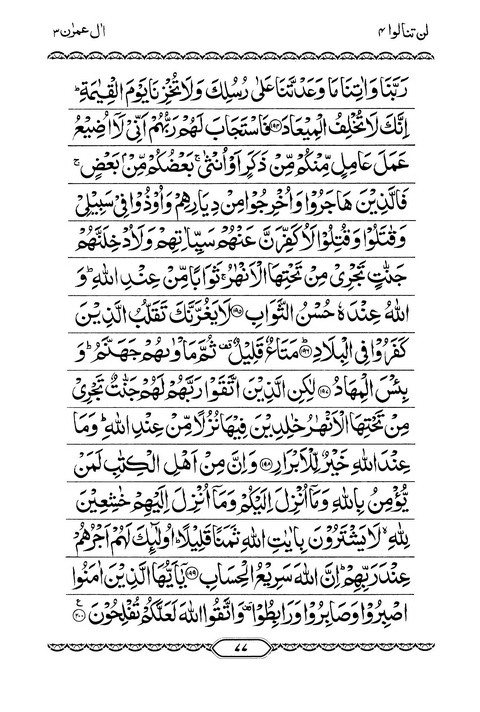 لن تنالوا ٤
اٰل عمرٰن ٣
رَبَّنَا وَاٰتِنَا مَا وَعَدْتَّنَا عَلٰى رُسُلِكَ وَلَا تُخْزِنَا يَوْمَ الْقِيٰمَةِ ؕ
اِنَّكَ لَا تُخْلِفُ الْمِيْعَادَ ﴿۱۹۴﴾ فَاسْتَجَابَ لَهُمْ رَبُّهُمْ اَنِّىْ لَاۤ اُضِيْعُ
عَمَلَ عَامِلٍ مِّنْكُمْ مِّنْ ذَكَرٍ اَوْ اُنْثٰى ۚ بَعْضُكُمْ مِّنْۢ بَعْضٍ ۚ
فَالَّذِيْنَ هَاجَرُوْا وَاُخْرِجُوْا مِنْ دِيَارِهِمْ وَاُوْذُوْا فِىْ سَبِيْلِىْ
وَقٰتَلُوْا وَقُتِلُوْا لَاُكَفِّرَنَّ عَنْهُمْ سَيِّاٰتِهِمْ وَلَاُدْخِلَنَّهُمْ
جَنّٰتٍ تَجْرِىْ مِنْ تَحْتِهَا الْاَنْهٰرُ ۚ ثَوَابًا مِّنْ عِنْدِ اللّٰهِ ؕ وَ
اللّٰهُ عِنْدَهٗ حُسْنُ الثَّوَابِ ﴿۱۹۵﴾ لَا يَغُرَّنَّكَ تَقَلُّبُ الَّذِيْنَ
كَفَرُوْا فِى الْبِلَادِ ﴿۱۹۶﴾ مَتَاعٌ قَلِيْلٌ ۟ ثُمَّ مَاْوٰىهُمْ جَهَنَّمُ ؕ وَ
بِئْسَ الْمِهَادُ ﴿۱۹۷﴾ لٰكِنِ الَّذِيْنَ اتَّقَوْا رَبَّهُمْ لَهُمْ جَنّٰتٌ تَجْرِىْ
مِنْ تَحْتِهَا الْاَنْهٰرُ خٰلِدِيْنَ فِيْهَا نُزُلًا مِّنْ عِنْدِ اللّٰهِ ؕ وَمَا
عِنْدَ اللّٰهِ خَيْرٌ لِّلْاَبْرَارِ ﴿۱۹۸﴾ وَاِنَّ مِنْ اَهْلِ الْكِتٰبِ لَمَنْ
يُّؤْمِنُ بِاللّٰهِ وَمَاۤ اُنْزِلَ اِلَيْكُمْ وَمَاۤ اُنْزِلَ اِلَيْهِمْ خٰشِعِيْنَ
لِلّٰهِ ۙ لَا يَشْتَرُوْنَ بِاٰيٰتِ اللّٰهِ ثَمَنًا قَلِيْلًا ؕ اُولٰٓئِكَ لَهُمْ اَجْرُهُمْ
عِنْدَ رَبِّهِمْ ؕ اِنَّ اللّٰهَ سَرِيْعُ الْحِسَابِ ﴿۱۹۹﴾ يٰۤاَيُّهَا الَّذِيْنَ اٰمَنُوا
اصْبِرُوْا وَصَابِرُوْا وَرَابِطُوْا ۟ وَاتَّقُوا اللّٰهَ لَعَلَّكُمْ تُفْلِحُوْنَ ﴿۲۰۰﴾ ع
٧٧